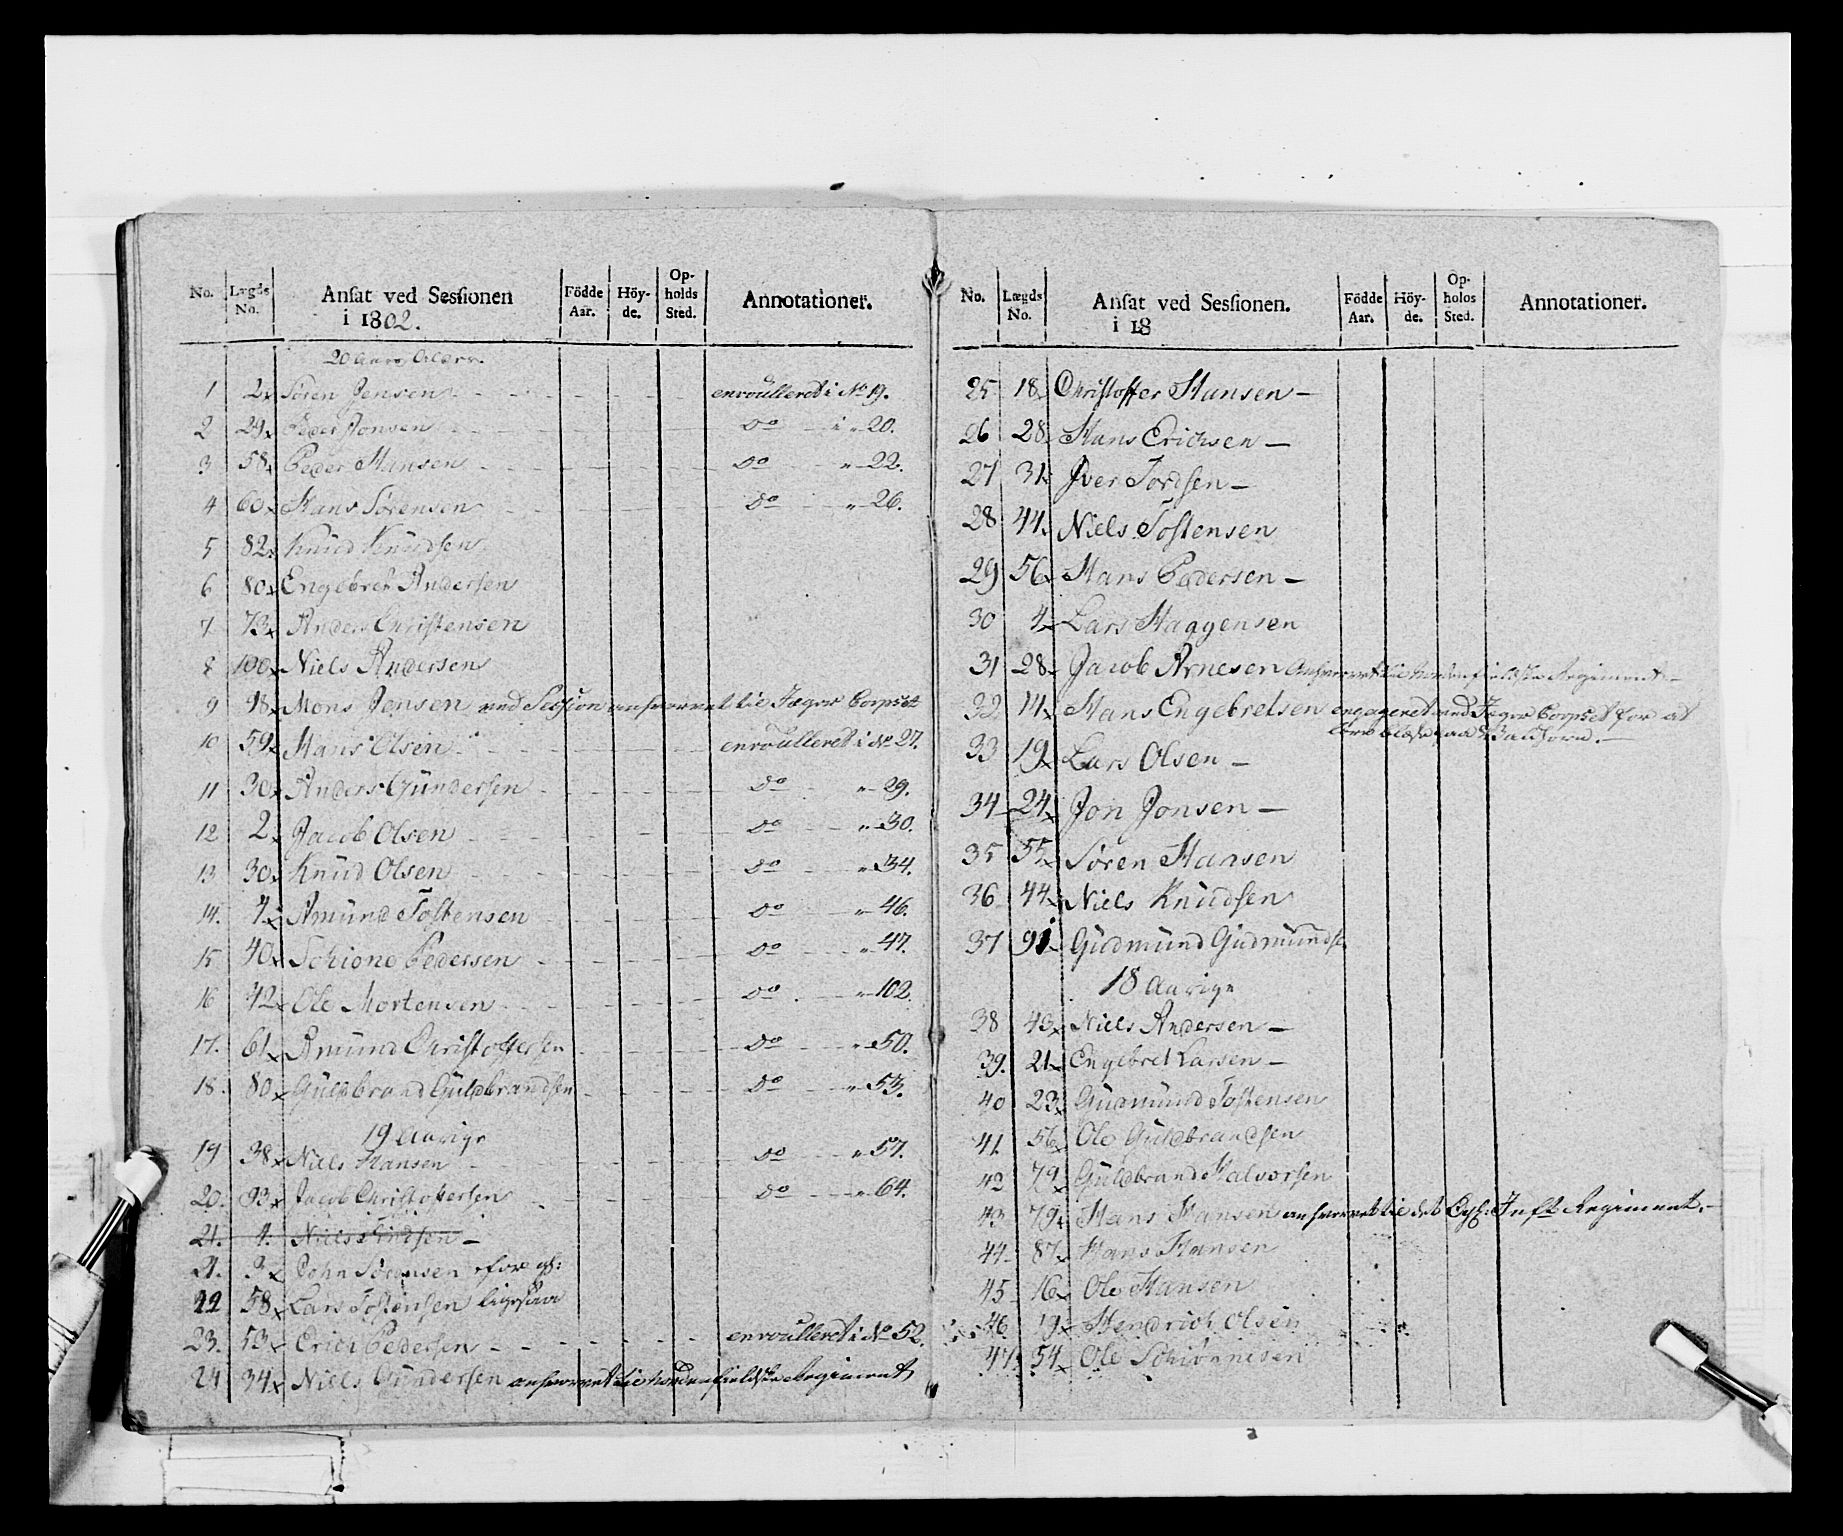 No. Lægds No. Ansat ved Sessionen i 1802. Födde Aar. Höy-de. Op-holds Sted. Annotationer.
20 Aars Alder.
1 2 Sören Jensen enroulleret i No 19.
2 29 Peder Jonsen do i " 20.
3 58 Peder Hansen do " 22.
4 60 Hans Sörensen do " 26.
5 82 Knud Knudsen
6 80 Engebret Andersen
7 73 Anders Christensen
8 100 Niels Andersen
9 98 Mons Jensen ved Session anhvervet til Jæger Corpset
10 59 Hans Olsen enroulleret i No 27.
11 30 Anders Gundersen do " 29.
12 2 Jacob Olsen do " 30.
13 30 Knud Olsen do " 34.
14. 4 Amund Tostensen do " 46.
15 40 Schiöne Pedersen do " 47.
16 42 Ole Mortensen do " 102.
17. 61 Amund Christoffersen do " 50.
18. 80 Guldbrand Guldbrandsen do " 53.
19 Aarige
19 38 Niels Hansen do " 57.
20. 93 Jacob Christoffersen do " 64.
21. 4. Niels
21. 3 John Sörensen
22 58 Lars Tostensen ligesaa
23. 53 Erich Pedersen enroulleret i No 52.
24 34 Niels Gundersen anhvervet til Nordenfieldske Regiment
No. Lægds No. Ansat ved Sessionen. i 18 Födde Aar. Höy-de. Op-holds Sted. Annotationer.
25 18 Christoffer Hansen -
26 28 Hans Erichsen -
27 31 Iver Tordsen -
28 44 Niels Tostensen
29 56 Hans Pedersen -
30 4 Lars Haagensen
31 28 Jacob Arnesen anhvervet til Nordenfieldske Regiment -
32 14 Hans Engebretsen engageret ved Jæger Corpset for at
lære blæse paa Valthorn. -
33 19 Lars Olsen -
34 24 Jon Jonsen -
35 55 Sören Hansen
36 44 Niels Knudsen
37 91 Gudmund Gudmunds
18 Aarige
38 43 Niels Andersen -
39. 21 Engebret Larsen -
40 23 Gudmund Tostensen
41. 56 Ole Guldbrandsen
42 79 Guldbrand Halvorsen
43 79 Hans Hansen anhvervet til det Inft Regiment. -
44 87 Hans Hansen
45 16 Ole Hansen
46 19 Hendrich Olsen
47. 54 Ole Schiönnesen